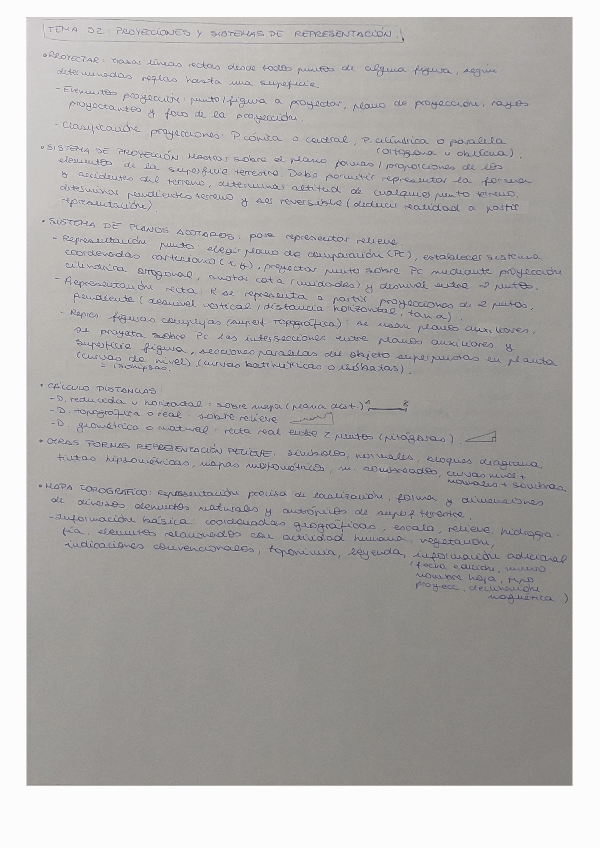 TEMA 32: PROYECCIONES Y SISTEMAS DE REPRESENTACIÓN.
• PROYECTAR: trazar líneas rectas desde todos puntos de alguna figura, según
determinadas reglas hasta una superficie.
- Elementos proyección: punto/figura a proyectar, plano de proyección, rayos
proyectantes y foco de la proyección.
- Clasificación proyecciones: P. cónica o central, P. cilíndrica o paralela
(ortogona u oblicua).
• SISTEMA DE PROYECCIÓN sobre el plano formas/proporciones de los
elementos de la superficie terrestre. Debe permitir representar la forma
y accidentes del terreno, determinar altitud de cualquier punto terreno,
determinar pendientes terreno y ser reversible (deducir realidad a partir
representación).
• SISTEMA DE PLANOS ACOTADOS: para representar relieve
- Representación punto: elegir plano de comparación (Pc), establecer sistema
coordenadas cartesiano (x, y), proyectar punto sobre Pc mediante proyección
cilíndrica ortogonal, anotar cota (unidades) y desnivel entre 2 puntos.
- Representación recta: R se representa a partir proyecciones de 2 puntos.
Pendiente (desnivel vertical/distancia horizontal, tan α).
- Repres figuras complejas (superf topográfica): se usan planos auxiliares.
se proyecta sobre Pc las intersecciones entre planos auxiliares y
superficie figura, secciones paralelas del objeto superpuestas en planta
(curvas de nivel) (curvas batimétricas o isóbatas).
= isohipsas.
• CÁLCULO DISTANCIAS:
- D. reducida u horizontal: sobre mapa (planta dist.) A B
- D. topográfica o real: sobre relieve
- D. geométrica o natural: recta real entre 2 puntos (pitágoras)
• OTRAS FORMAS REPRESENTACIÓN RELIEVE: símbolos, normales, bloques diagrama,
tintas hipsométricas, mapas m. sombreados, curvas nivel +
normales + sombras.
• MAPA TOPOGRÁFICO: representación precisa de localización, forma y dimensiones
de diversos elementos naturales y antrópicos de superf terrestre.
- Información básica: coordenadas geográficas, escala, relieve, hidrogra-
fía, elementos relacionados con actividad humana, vegetación,
indicaciones convencionales, toponimia, leyenda, información adicional
(fecha edición,
nombre hoja, tipo
proyecc, declinación
magnética)